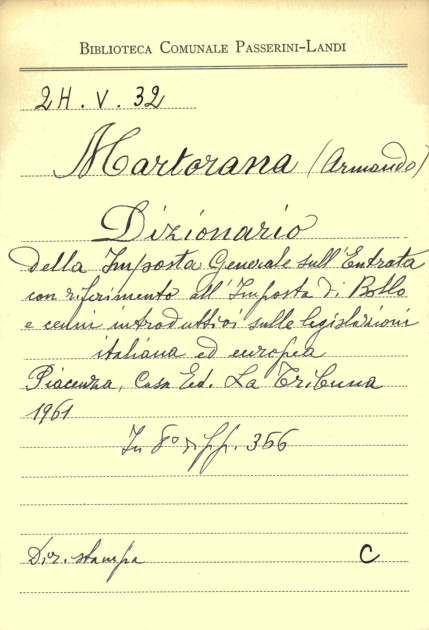 BIBLIOTECA COMUNALE PASSERINI-LANDI
2H. V. 32
Martorana (Armando)
Dizionario
della Imposta Generale sull'Entrata
con riferimento all'Imposta di Bollo
e cenni introduttivi sulle legislazioni
italiana ed europea
Piacenza, Casa Ed. La Tribuna
1961
In 8° di pp. 356
Dir. stampa C